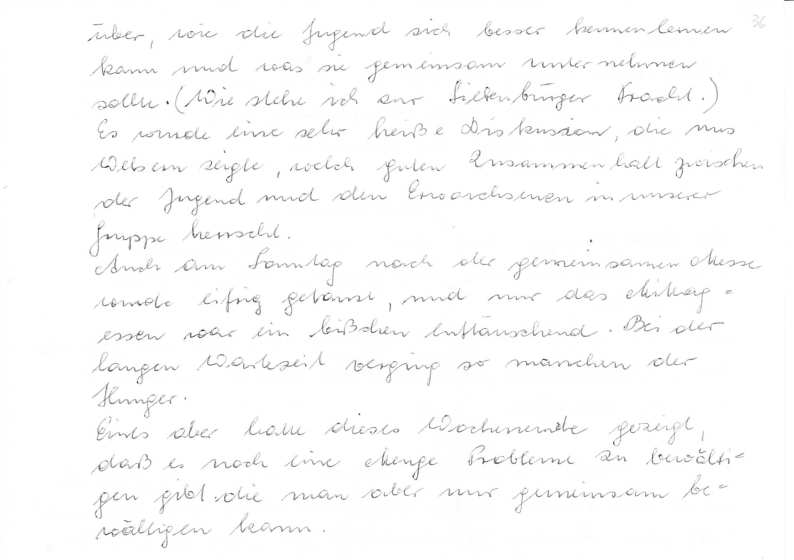 36
über, wie die Jugend sich besser kennenlernen
kann und was sie gemeinsam unternehmen
sollte. (Wie stehe ich zur Siebenbürger Tracht.)
Es wurde eine sehr heiße Diskussion, die uns
Welsern zeigte, welch guten Zusammenhalt zwischen
der Jugend und den Erwachsenen in unserer
Gruppe herrscht.
Auch am Sonntag nach der gemeinsamen Messe
wurde eifrig getanzt, und nur das Mittag-
essen war ein bißchen enttäuschend. Bei der
langen Wartezeit verging so manchen der
Hunger.
Eines aber hatte dieses Wochenende gezeigt,
daß es noch eine Menge Probleme zu bewälti-
gen gibt, die man aber nur gemeinsam be-
wältigen kann.